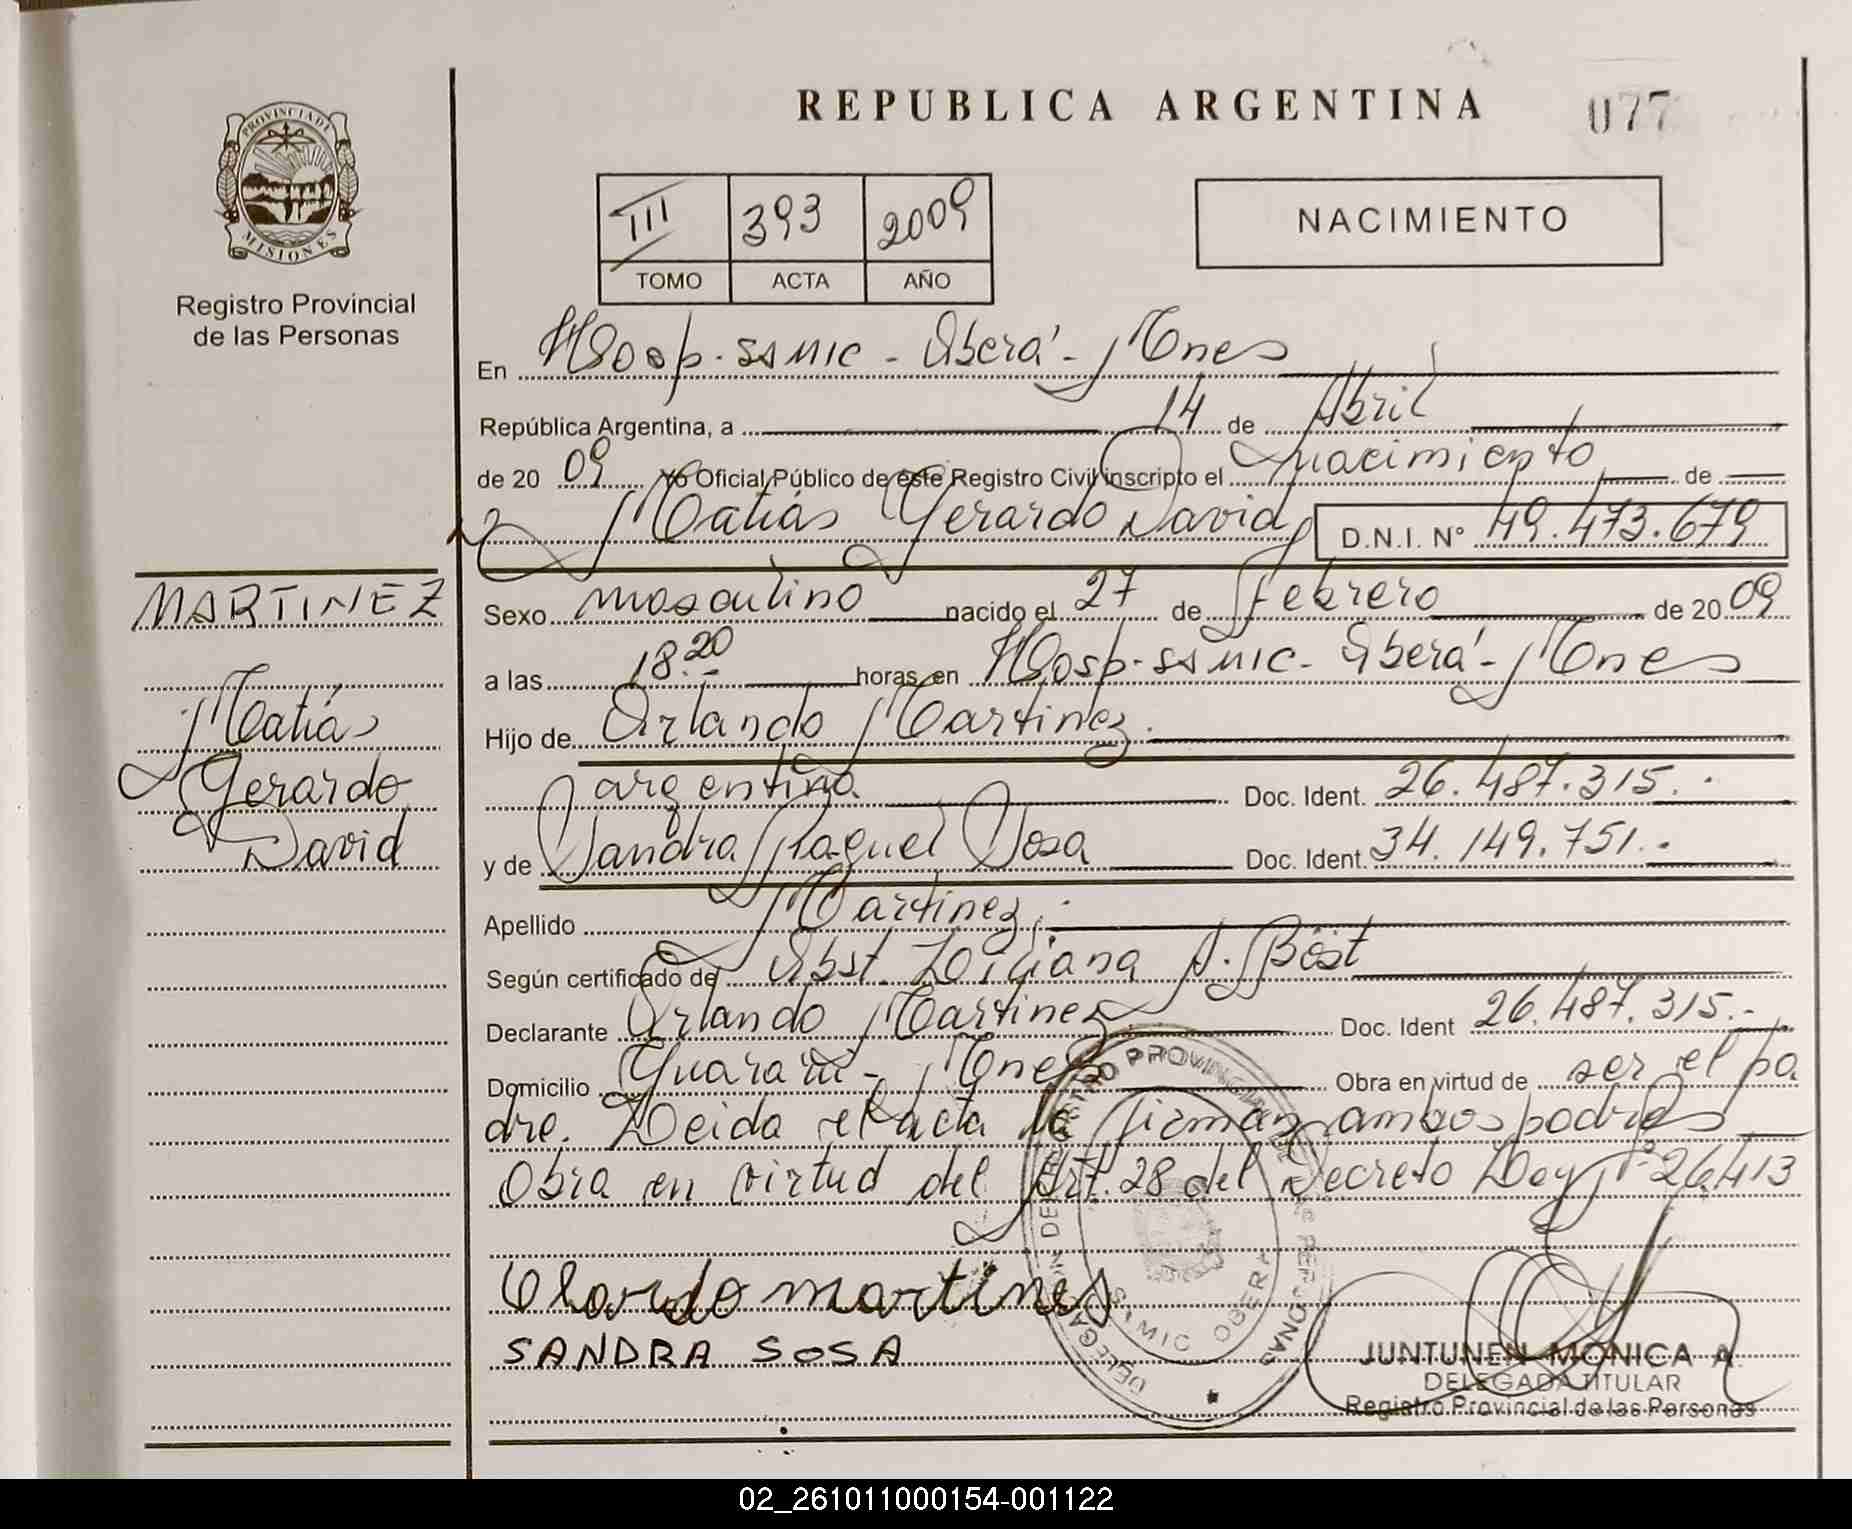 REPUBLICA ARGENTINA
077
PROVINCIA DE
MISIONES
Registro Provincial
de las Personas
III 393 2009
TOMO ACTA AÑO
NACIMIENTO
En Hosp. SAMIC - Oberá - Mnes
República Argentina, a 14 de Abril
de 20 09 Yo Oficial Público de este Registro Civil inscripto el nacimiento de
Matiás Gerardo David D.N.I. N° 49.473.679
MARTINEZ
Matiás
Gerardo
David
Sexo masculino nacido el 27 de Febrero de 20 09
a las 18.20 horas en Hosp. SAMIC - Oberá - Mnes
Hijo de Orlando Martinez.
argentino Doc. Ident. 26.487.315.-
y de Sandra Raquel Sosa Doc. Ident. 34.149.751.-
Apellido Martinez.-
Según certificado de Obst. Liliana A. Bost
Declarante Orlando Martinez Doc. Ident 26.487.315.-
Domicilio Guaraní - Mnes Obra en virtud de ser el pa
dre. Leida el acta la firman ambos padres
Obra en virtud del Art. 28 del Decreto Ley N° 26413
martines
SANDRA SOSA
SAMIC OBERA
JUNTUNEN MONICA A.
DELEGADA TITULAR
Registro Provincial de las Personas
02_261011000154-001122